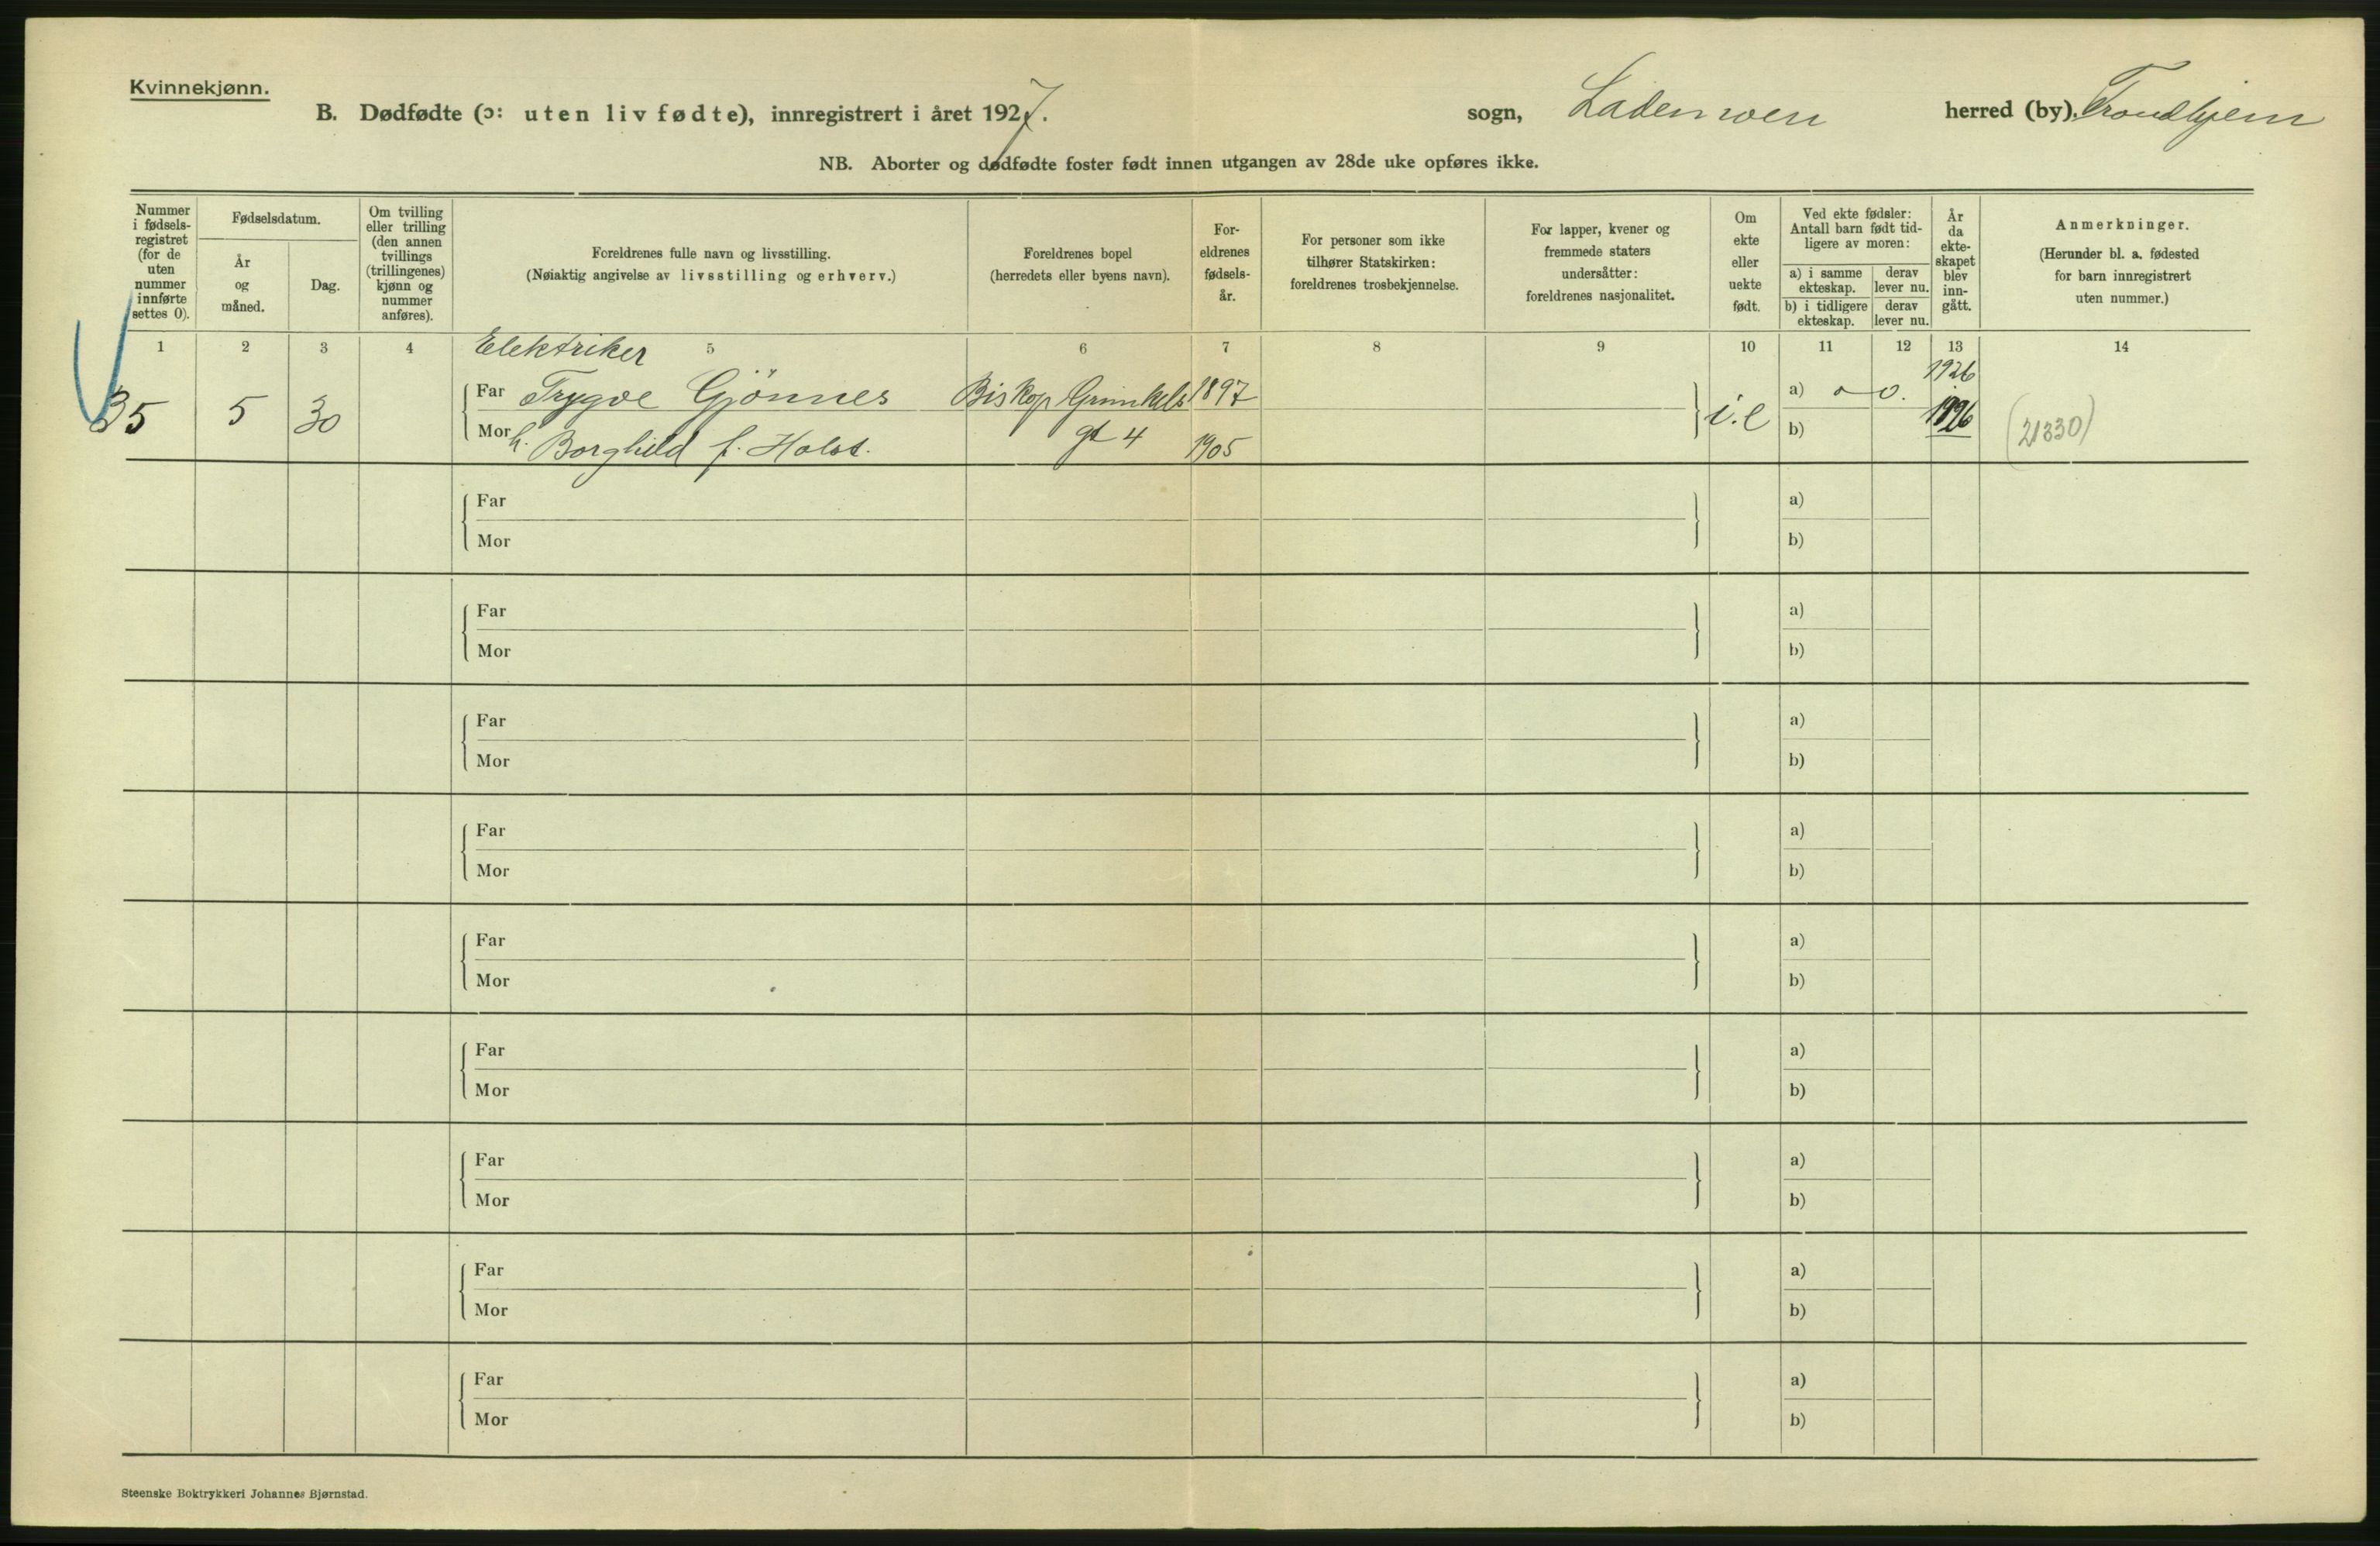 Kvinnekjønn.
B. Dødfødte (ɔ: uten liv fødte), innregistrert i året 1927.
sogn, Lademoen herred (by). Trondhjem
NB. Aborter og dødfødte foster født innen utgangen av 28de uke opføres ikke.
Nummer i fødsels-registret (for de uten nummer innførte settes 0).
Fødselsdatum.
År og måned.
Dag.
Om tvilling eller trilling (den annen tvillings (trillingenes) kjønn og nummer anføres).
Foreldrenes fulle navn og livsstilling.
(Nøiaktig angivelse av livsstilling og erhverv.)
Foreldrenes bopel
(herredets eller byens navn).
For-eldrenes fødsels-år.
For personer som ikke tilhører Statskirken: foreldrenes trosbekjennelse.
For lapper, kvener og fremmede staters undersåtter: foreldrenes nasjonalitet.
Om ekte eller uekte født.
Ved ekte fødsler: Antall barn født tid-ligere av moren:
a) i samme ekteskap.
derav lever nu.
b) i tidligere ekteskap.
derav lever nu.
År da ekte-skapet blev inn-gått.
Anmerkninger.
(Herunder bl. a. fødested for barn innregistrert uten nummer.)
1 2 3 4 5 6 7 8 9 10 11 12 13 14
Elektriker
1926
Far Trygve Gjönnes Biskop Grimkels 1897 a) o o.
35 5 30 i.e 1926 (21330)
Mor h. Borghild f. Holst. gt 4 1905 b)
Far a)
Mor b)
Far a)
Mor b)
Far a)
Mor b)
Far a)
Mor b)
Far a)
Mor b)
Far a)
Mor b)
Far a)
Mor b)
Far a)
Mor b)
Far a)
Mor b)
Steenske Boktrykkeri Johannes Bjørnstad.